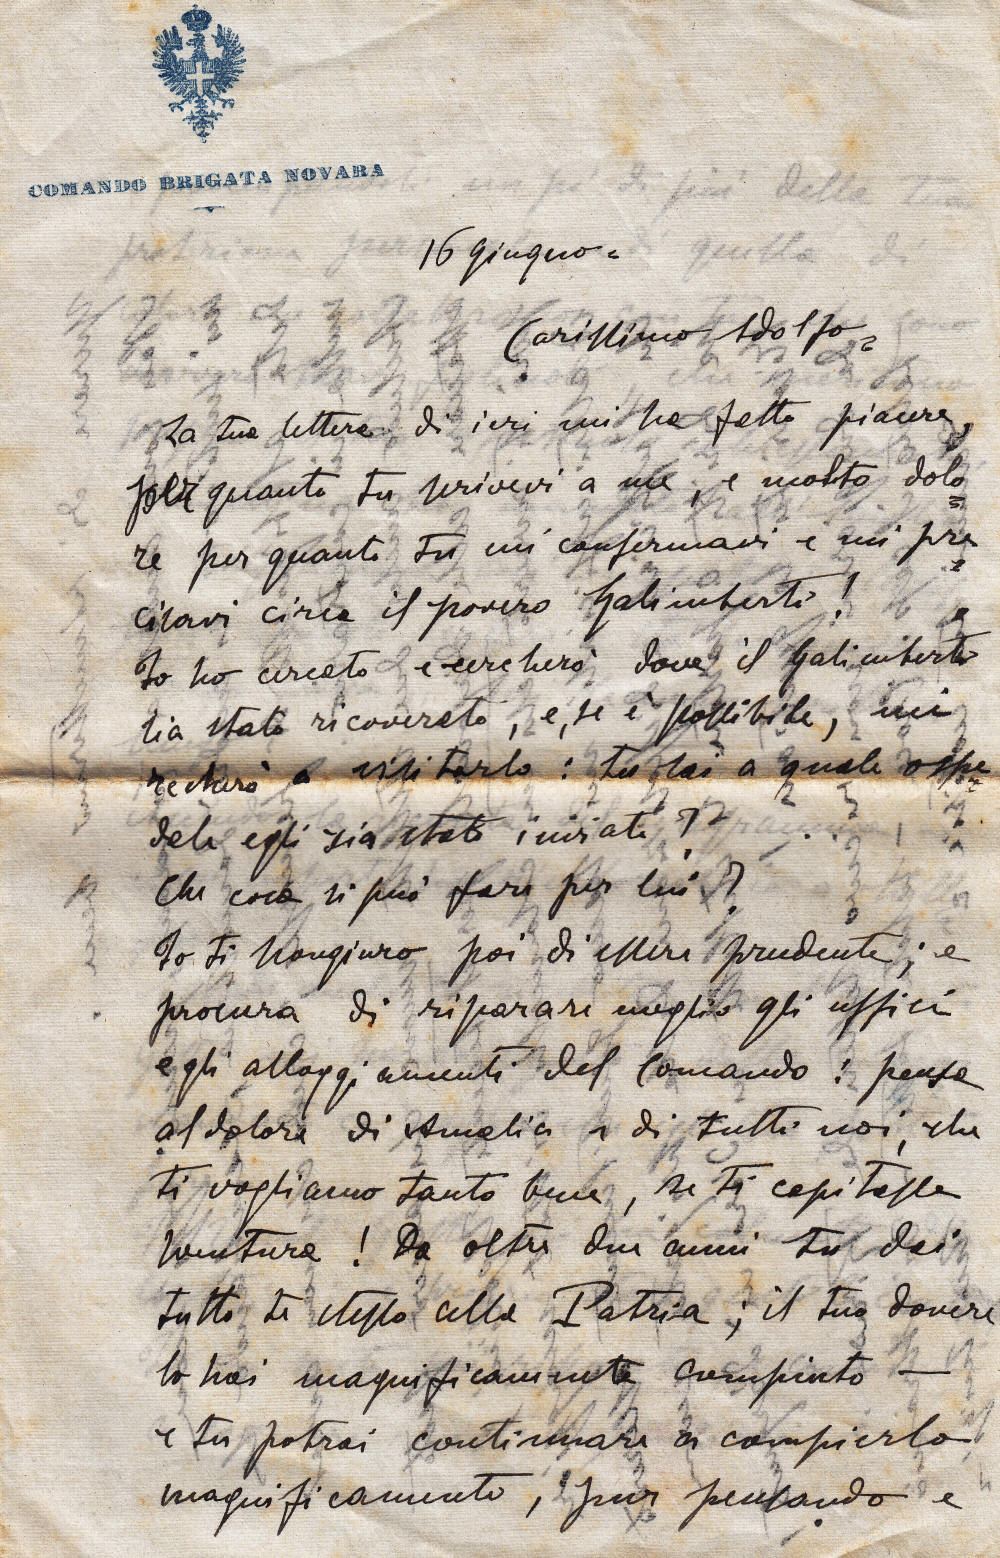 COMANDO BRIGATA NOVARA
16 giugno =
Carissimo Adolfo =
La tua lettera di ieri mi ha fatto piacere,
per quanto tu scrivevi a me, e molto dolo=
re per quanto tu mi confermavi e mi pre=
cisavi circa il povero Galimberti!
Io ho cercato e cercherò dove il Galimberti
sia stato ricoverato, e, se è possibile, mi
recherò a visitarlo: tu sai a quale ospe=
dale egli sia stato inviato?
Che cosa si può fare per lui?
Io ti scongiuro poi di essere prudente; e
procura di riparare meglio gli uffici
e gli alloggiamenti del Comando: pensa
al dolore di Amelia e di tutti noi, che
ti vogliamo tanto bene, se ti capitasse
sventura! Da oltre due anni tu dai
tutto te stesso alla Patria; il tuo dovere
lo hai magnificamente compiuto —
e tu potrai continuare a compierlo
magnificamente, pur pensando e